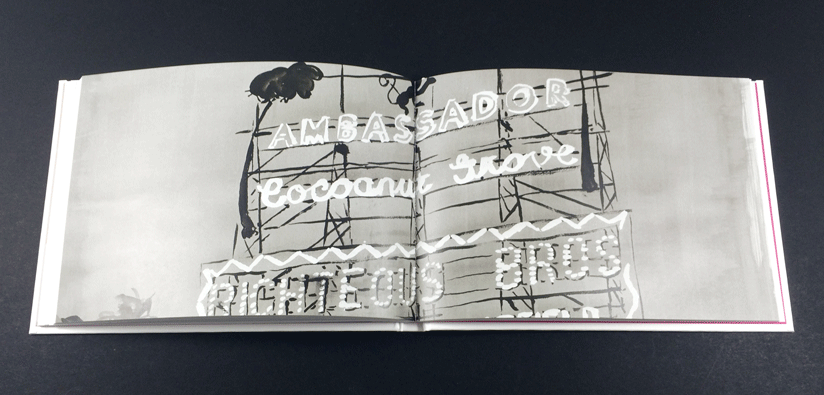 AMBASSADOR
Cocoanut Grove
RIGHTEOUS BROS